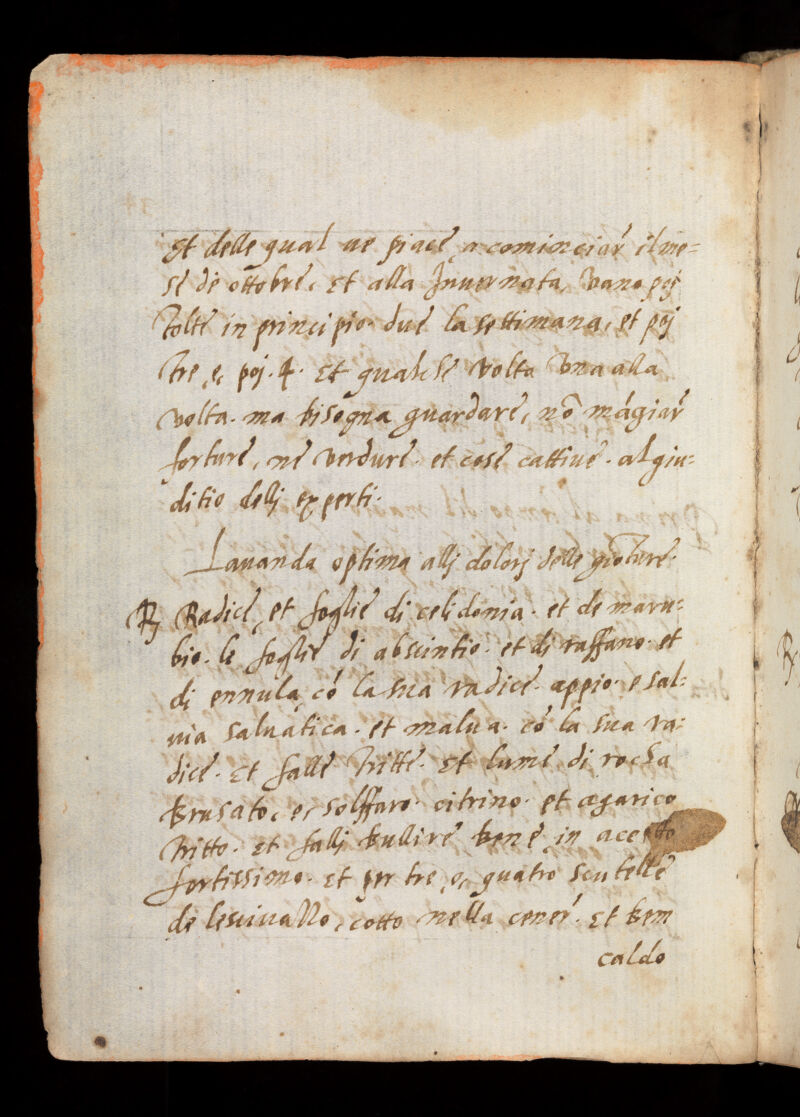 et delle qual ve piace, a cominciar̃ il me=
se de ottobre, et alla Invernata, vano poi
tolte in principio. due la settimana, et poj
tre, e, poj. 4. et qualche volta una alla
volta. ma bisogna guardare, nõ mágiar̃
forture, ne verdure. et cose cattive. al giu=
ditio dellj experti.
Lavanda optima allj dolorj delle gionture.
℞ Radice, et foglie di celidonia. et de maru=
bio. le foglie di absintio. et di raffano. et
di ennula, có la sua radice. appio. e sal=
via salvatica. et malva. có la sua ra=
dice. et falle tritte. et lume di rocha
brusato, e, solffaro. citrino. et agarico
tritto. et fallj bullire bene, in acetto
fortissimo. et per tre, o, quatro scutelle
de lescivazzo, cotto nella cener̃. et ben
caldo